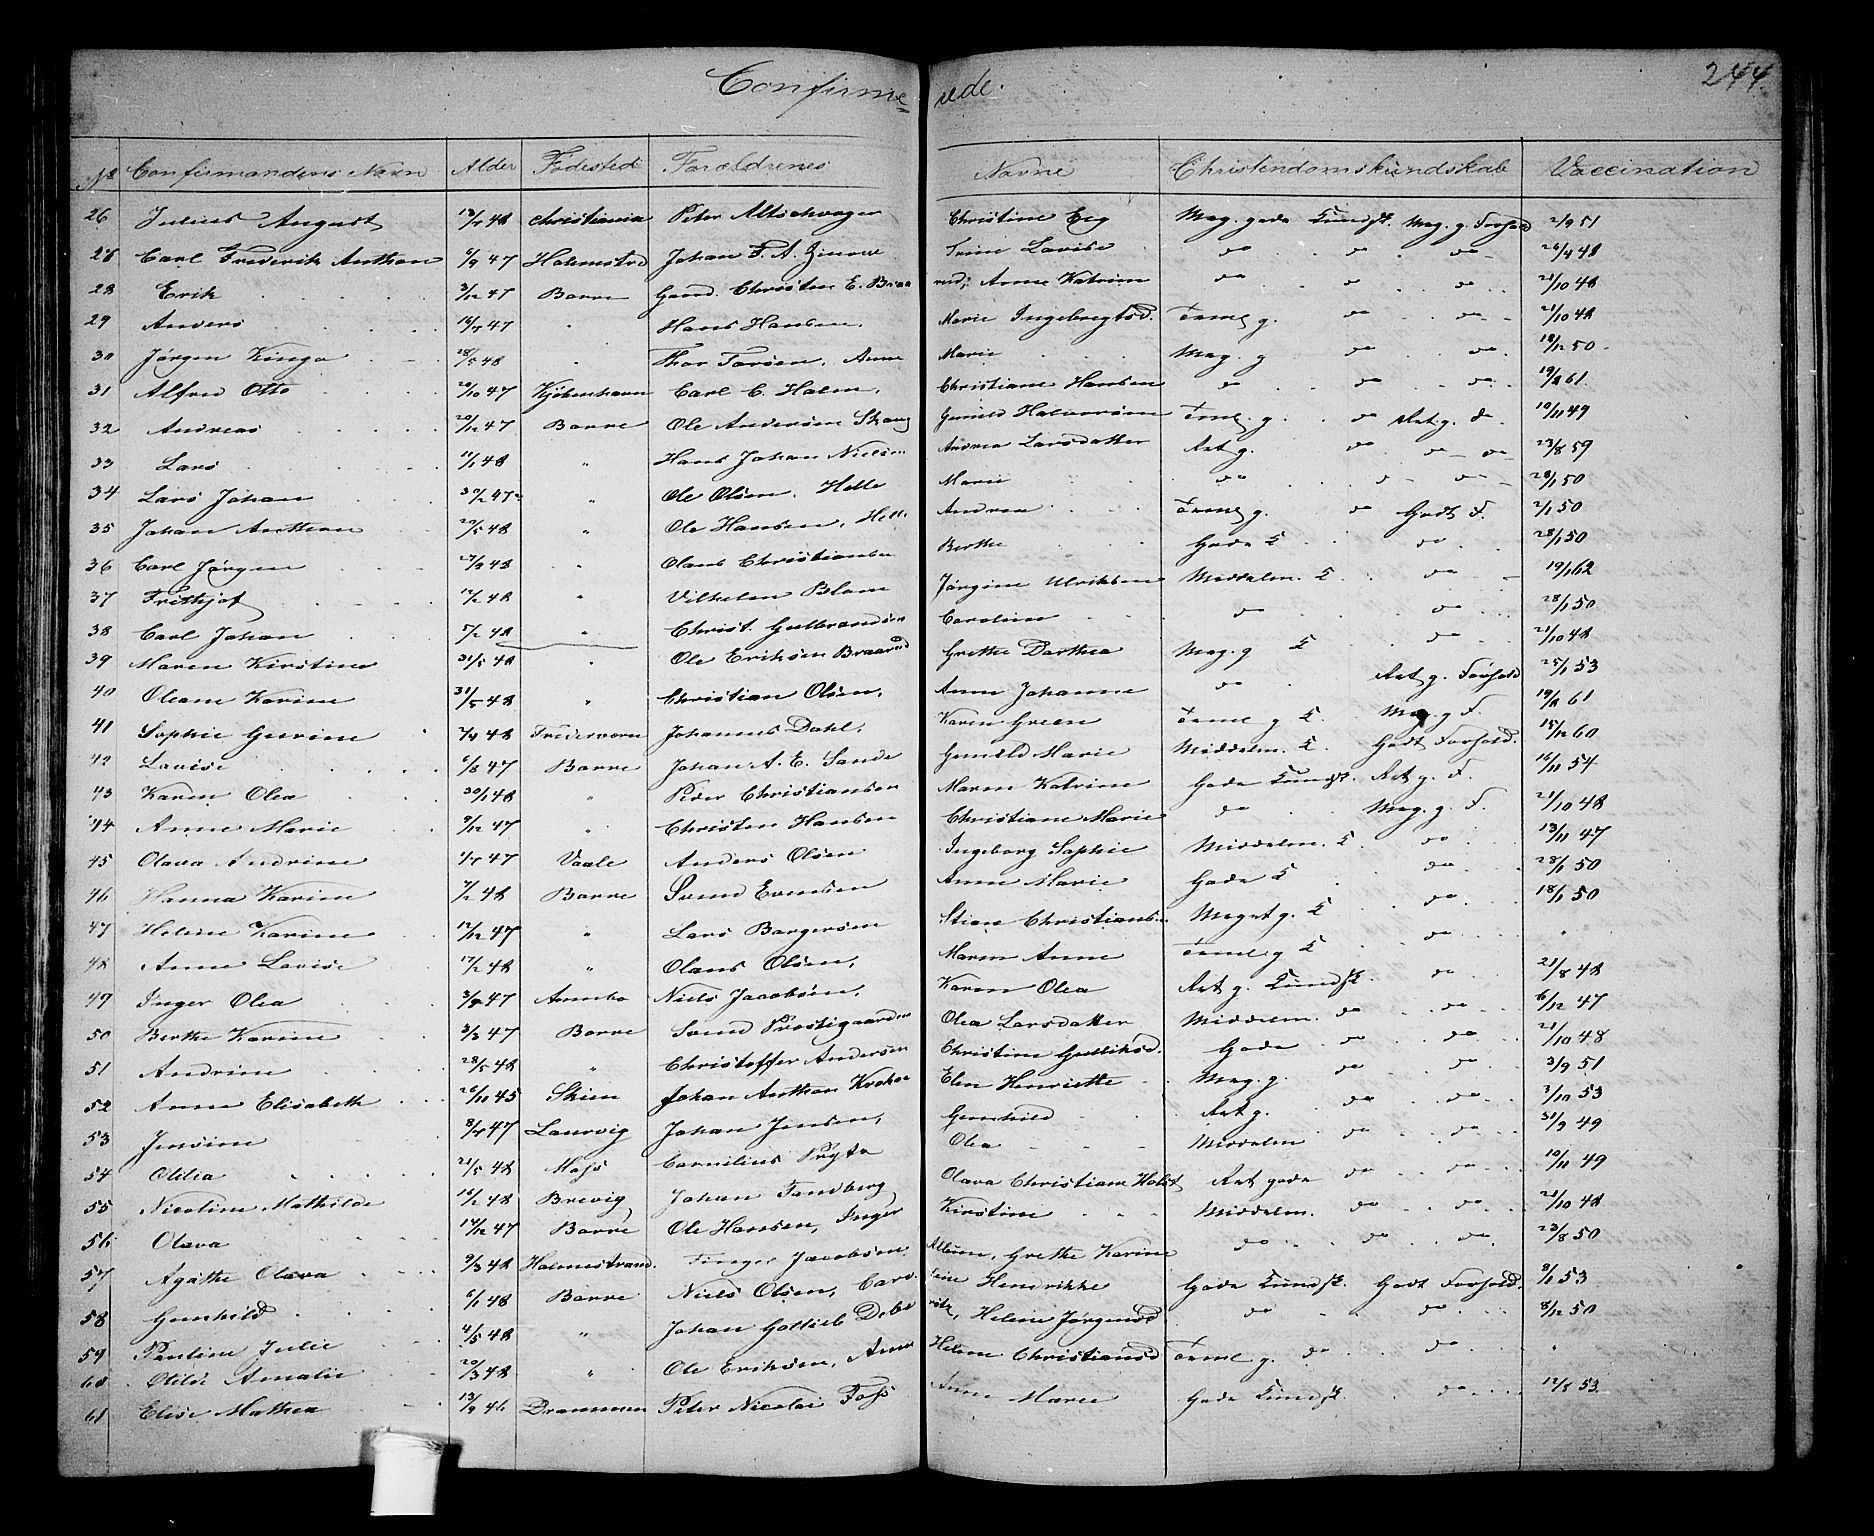 Confirme= rede. 244.
No Confirmandens Navn Alder Fødested Forældrenes Navne Christendomskundskab Vaccination
26 Julius August Christiania Peter Altschvager Christine Eeg Meg. gode Kundsk. Meg. g. Forhold 2/9 51
28 Carl Frederik Anthon 6/9 47 Holmestrd Johan F. A. Trine Lovise do do do 26/4 48
28 Erik 3/12 47 Borre Gaard. Christen E. Braa rud; Anne Katrine do do do 21/10 48
29 Anders 16/7 47 " Hans Hansen, Marie Ingebregtsd. Temel g. do do 21/10 48
30 Jørgen Kinga 28/5 48 " Thor Torsen, Anne Marie Meg. g do do 18/12 50
31 Alfred Otto 20/10 47 Kjöbenhavn Carl C. Holm, Christiane Hansen do do do 19/8 61.
32 Andreas 20/12 47 Borre Ole Andersen Skoug Gunild Halvorsen Temel g. do Ret g. do 10/11 49
33 Lars 11/1 48 " Hans Johan Nielsen Andrea Larsdatter Ret g. do do do 23/8 59
34 Lars Johan 30/12 47 " Ole Olsen, Helle Marie do do do 28/1 50
35 Johan Anthon 20/5 48 " Ole Hansen, Helle Andrea Temel g. do Godt F. 2/1 50
36 Carl Jørgen 27/3 48 " Olaus Christiansen Berthe Gode K do 28/1 50
37 Frithjof 12/2 48 " Vilhelm Blom Jørgine Ulriksen Middelm. K do 19/1 62
38 Carl Johan 5/2 48 " Christ. Gulbrandsen Caroline do do 28/1 50
39 Maren Kirstine 31/5 48 " Ole Eriksen Braarud Grethe Dorthea Meg. g K do 21/10 48
40 Oleane Karine 31/5 48 " Christian Olsen, Anne Johanne do Ret g. Forhold 25/1 53
41 Sophie Gurine 7/4 48 Fredrevorn Johannes Dahl, Karen Green Temel g K. Meg. g F. 19/8 61
42 Lovise 6/8 47 Borre Johan A. E. Sande Gunild Marie Middelm. K. Godt Forhold. 15/12 60
43 Karen Olea 30/1 48 " Peder Christiansen Maren Katrine Gode Kundsk. Ret g. F. 16/11 54
44 Anne Marie 9/12 47 " Christen Hansen Christiane Marie do Meg. g. F. 21/10 48
45 Olava Andrine 1/7 47 Vaale Anders Olsen Ingeborg Sophie Middelm. K. do 13/11 47
46 Hanna Karine 7/2 48 Borre Svend Evensen Anne Marie Gode K do 28/1 50
47 Helene Karine 12/12 47 " Lars Borgersen Stine Christiansen Meget g. K do 18/1 50
48 Anne Lovise 17/2 48 " Olaus Olsen, Maren Anne Temel g K do "
49 Inger Olea 3/8 47 Annebo Niels Jacobsen, Karen Olea Ret g. Kundsk. do 21/8 48
50 Berthe Karine 3/3 47 Borre Svend Prestegaarden Olea Larsdatter Middelm. do do 6/12 47
51 Andrine 28/5 48 " Christoffer Andersen Christine Gulliksd. Gode do do 21/10 48
52 Anne Elisabeth 26/11 45 Skien Johan Anthon Krohn Elen Henriette Meg. g. do do 3/9 51
53 Jensine 8/7 47 Laurvig Johan Jensen, Gunhild Ret g. do do 3/10 53
54 Otilia 21/5 48 Moss Cornilius Prytz Olea Middelm do do 31/9 49
55 Nicoline Mathilde 16/2 48 Brevig Johan Tandberg Olava Christiane Holst Ret gode do do 10/11 49
56 Olava 14/12 47 Borre Ole Hansen, Inger Kirstine Middelm. do do 21/10 48
57 Agathe Olava 9/3 48 Holmestrand. Jacobsen Grethe Karine do do do 23/8 50
58 Gunhild 6/1 48 Borre Niels Olsen, Henrikke Gode Kundsk. Godt Forhold. 8/1 53
59 Pauline Julie 4/5 48 " Johan Gottlieb Helene Jørgensd do do 8/12 50
60 Otilde Amalie 20/3 48 " Ole Eriksen, Anne Helene Christiansd Temel g. do do "
61 Elise Mathea 13/9 46 Drammen Peter Nicolai Foss Anne Marie Gode Kundsk. do 12/5 53